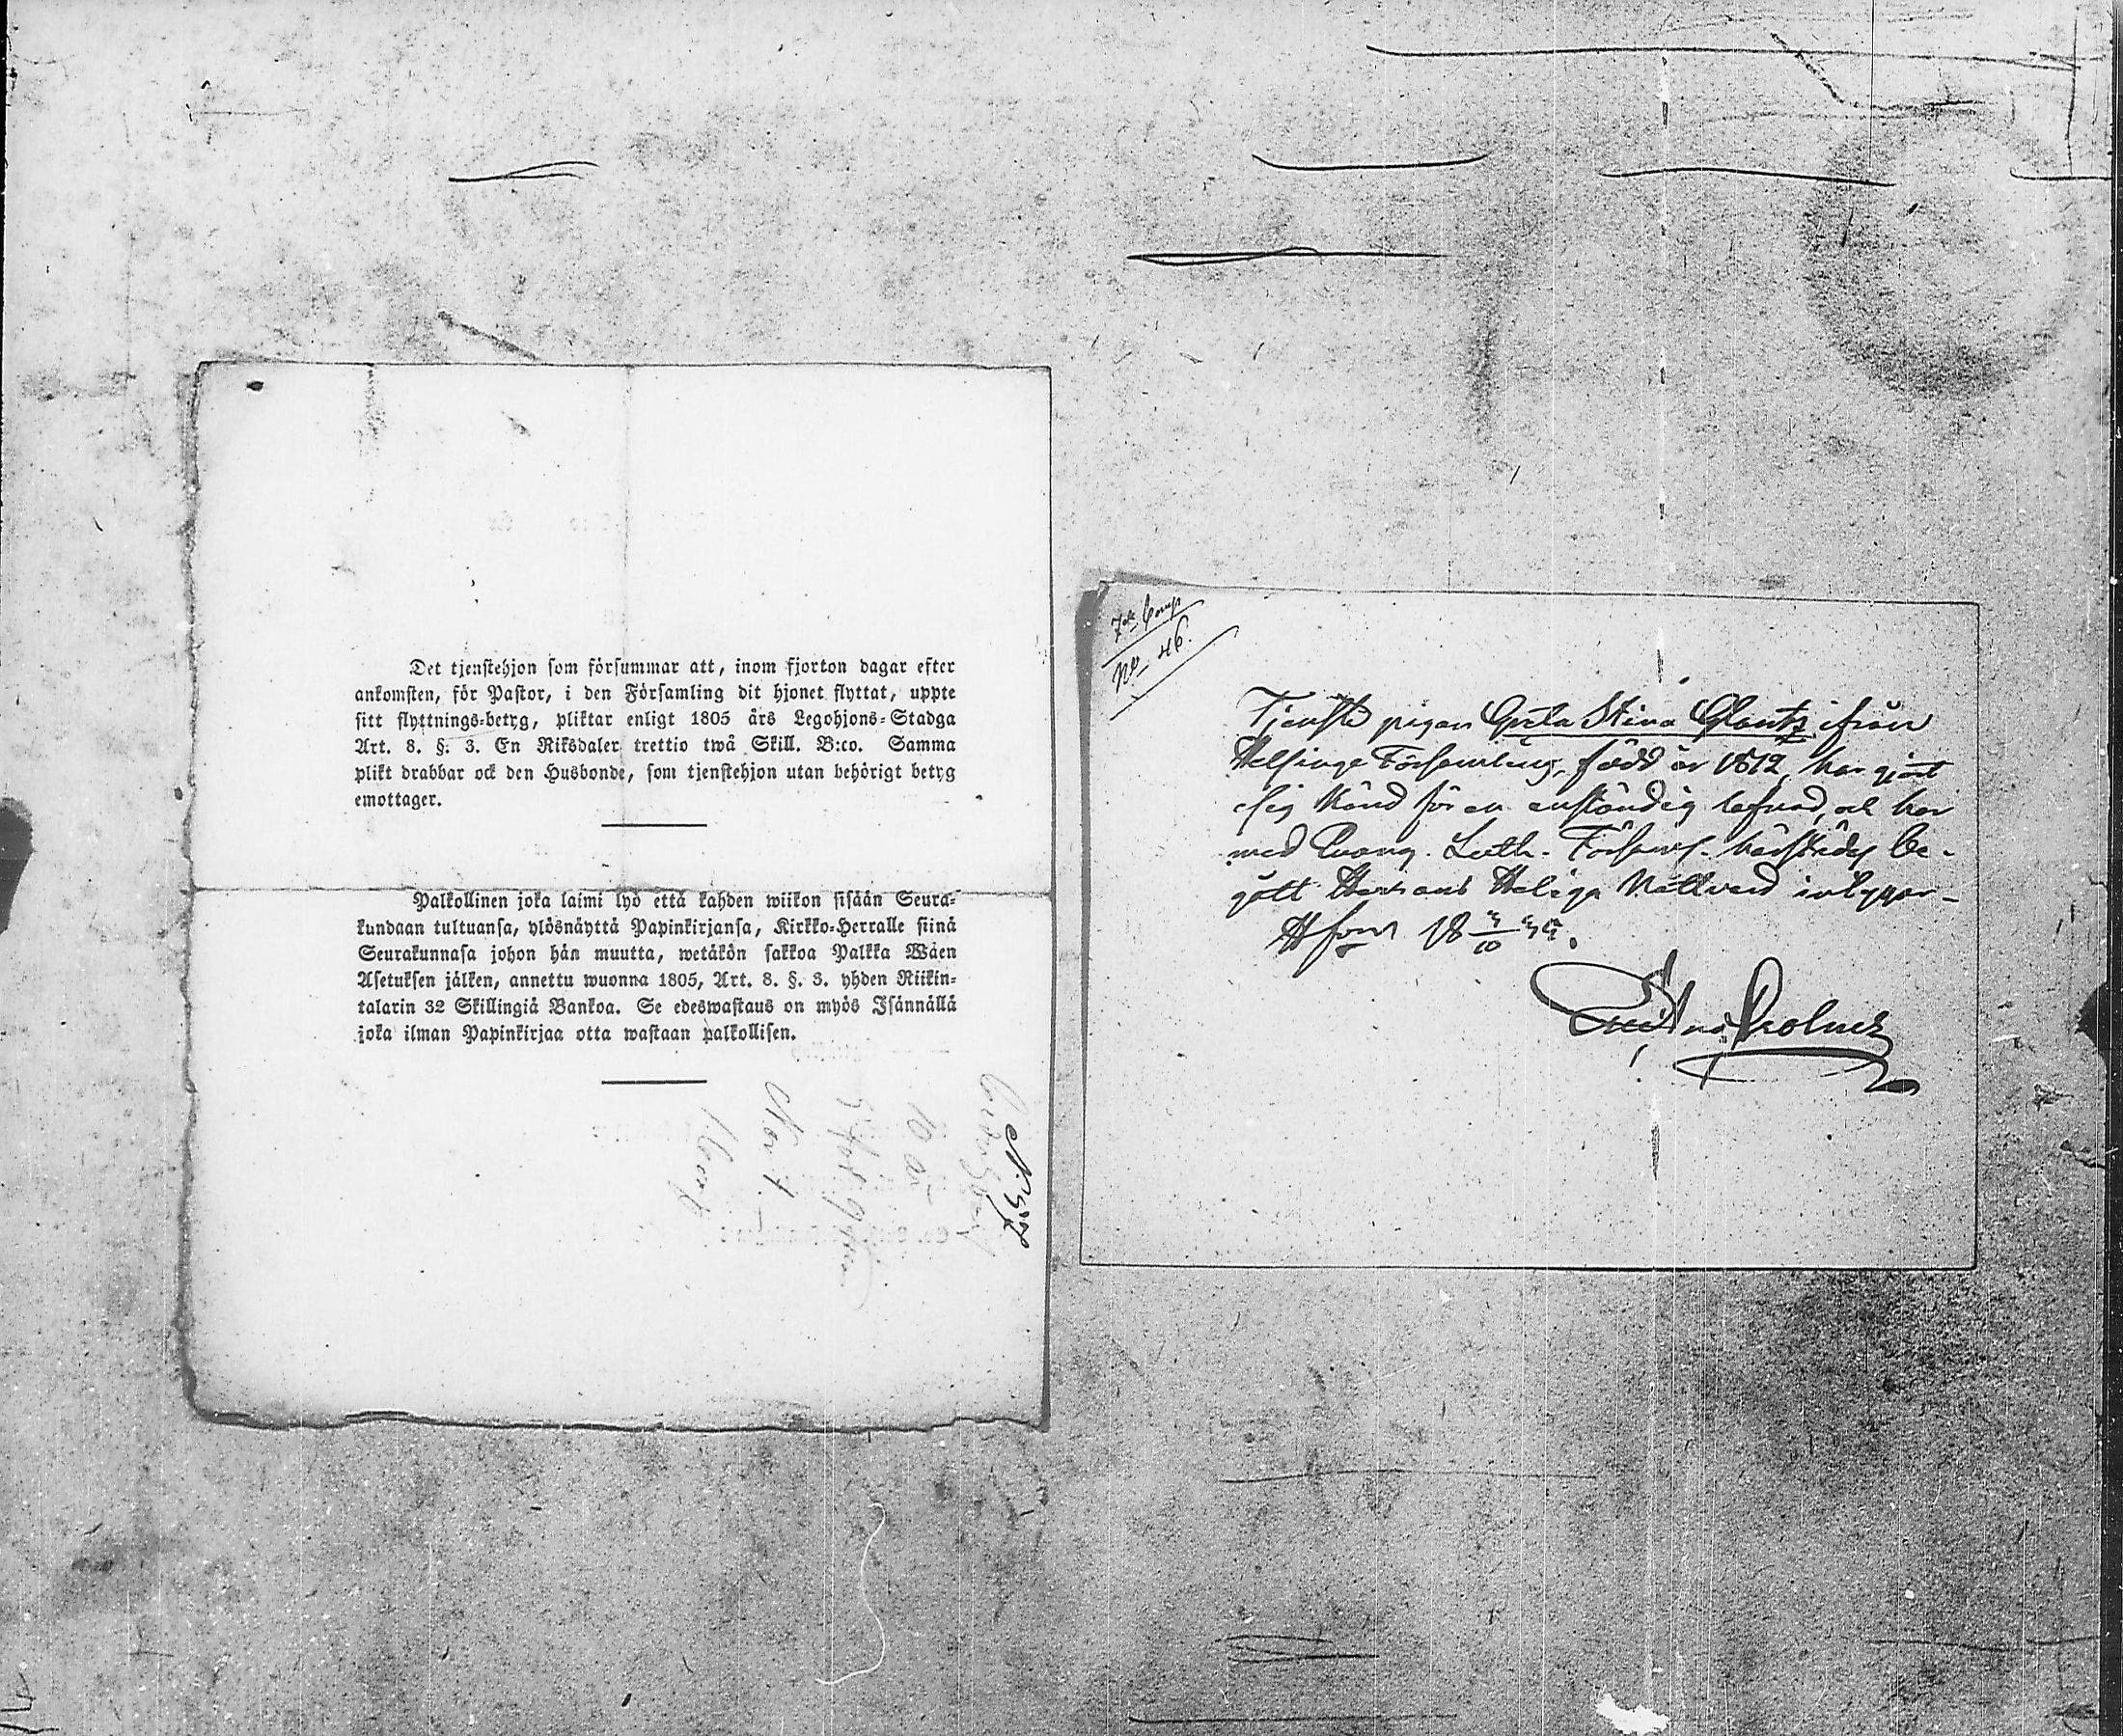 Det tjenstehjon som försummar att, inom fjorton dagar efter
ankomsten, för Pastor, i den Församling dit hjonet flyttat, uppte
sitt flyttnings-betyg, pliktar enligt 1805 års Legohjons-Stadga
Art. 8. §. 3. En Riksdaler trettio twå Skill. B:co. Samma
plikt drabbar ock den Husbonde, som tjenstehjon utan behörigt betyg
emottager.
Palkollinen joka laimi lyö että kahden wiikon sisään Seura-
kundaan tultuansa, ylösnäyttä Papinkirjansa, Kirkko-Herralle siinä
Seurakunnasa johon hän muutta, wetäkön sakkoa Palkka Wäen
Asetuksen jälken, annettu wuonna 1805, Art. 8. §. 3. yhden Riikin-
talarin 32 Skillingiä Bankoa. Se edeswastaus on myös Isännällä
joka ilman Papinkirjaa otta wastaan palkollisen.
7de Comp
No 46.
Tjenste pigan Greta Stina Glantz ifrån
Helsinge Församling, född år 1812, har gjort
sig känd för en anständig lefnad, och har
med Evang. Luth. Församl. härstädes be-
gått Herrans Heliga Nattvard
H:fors 18